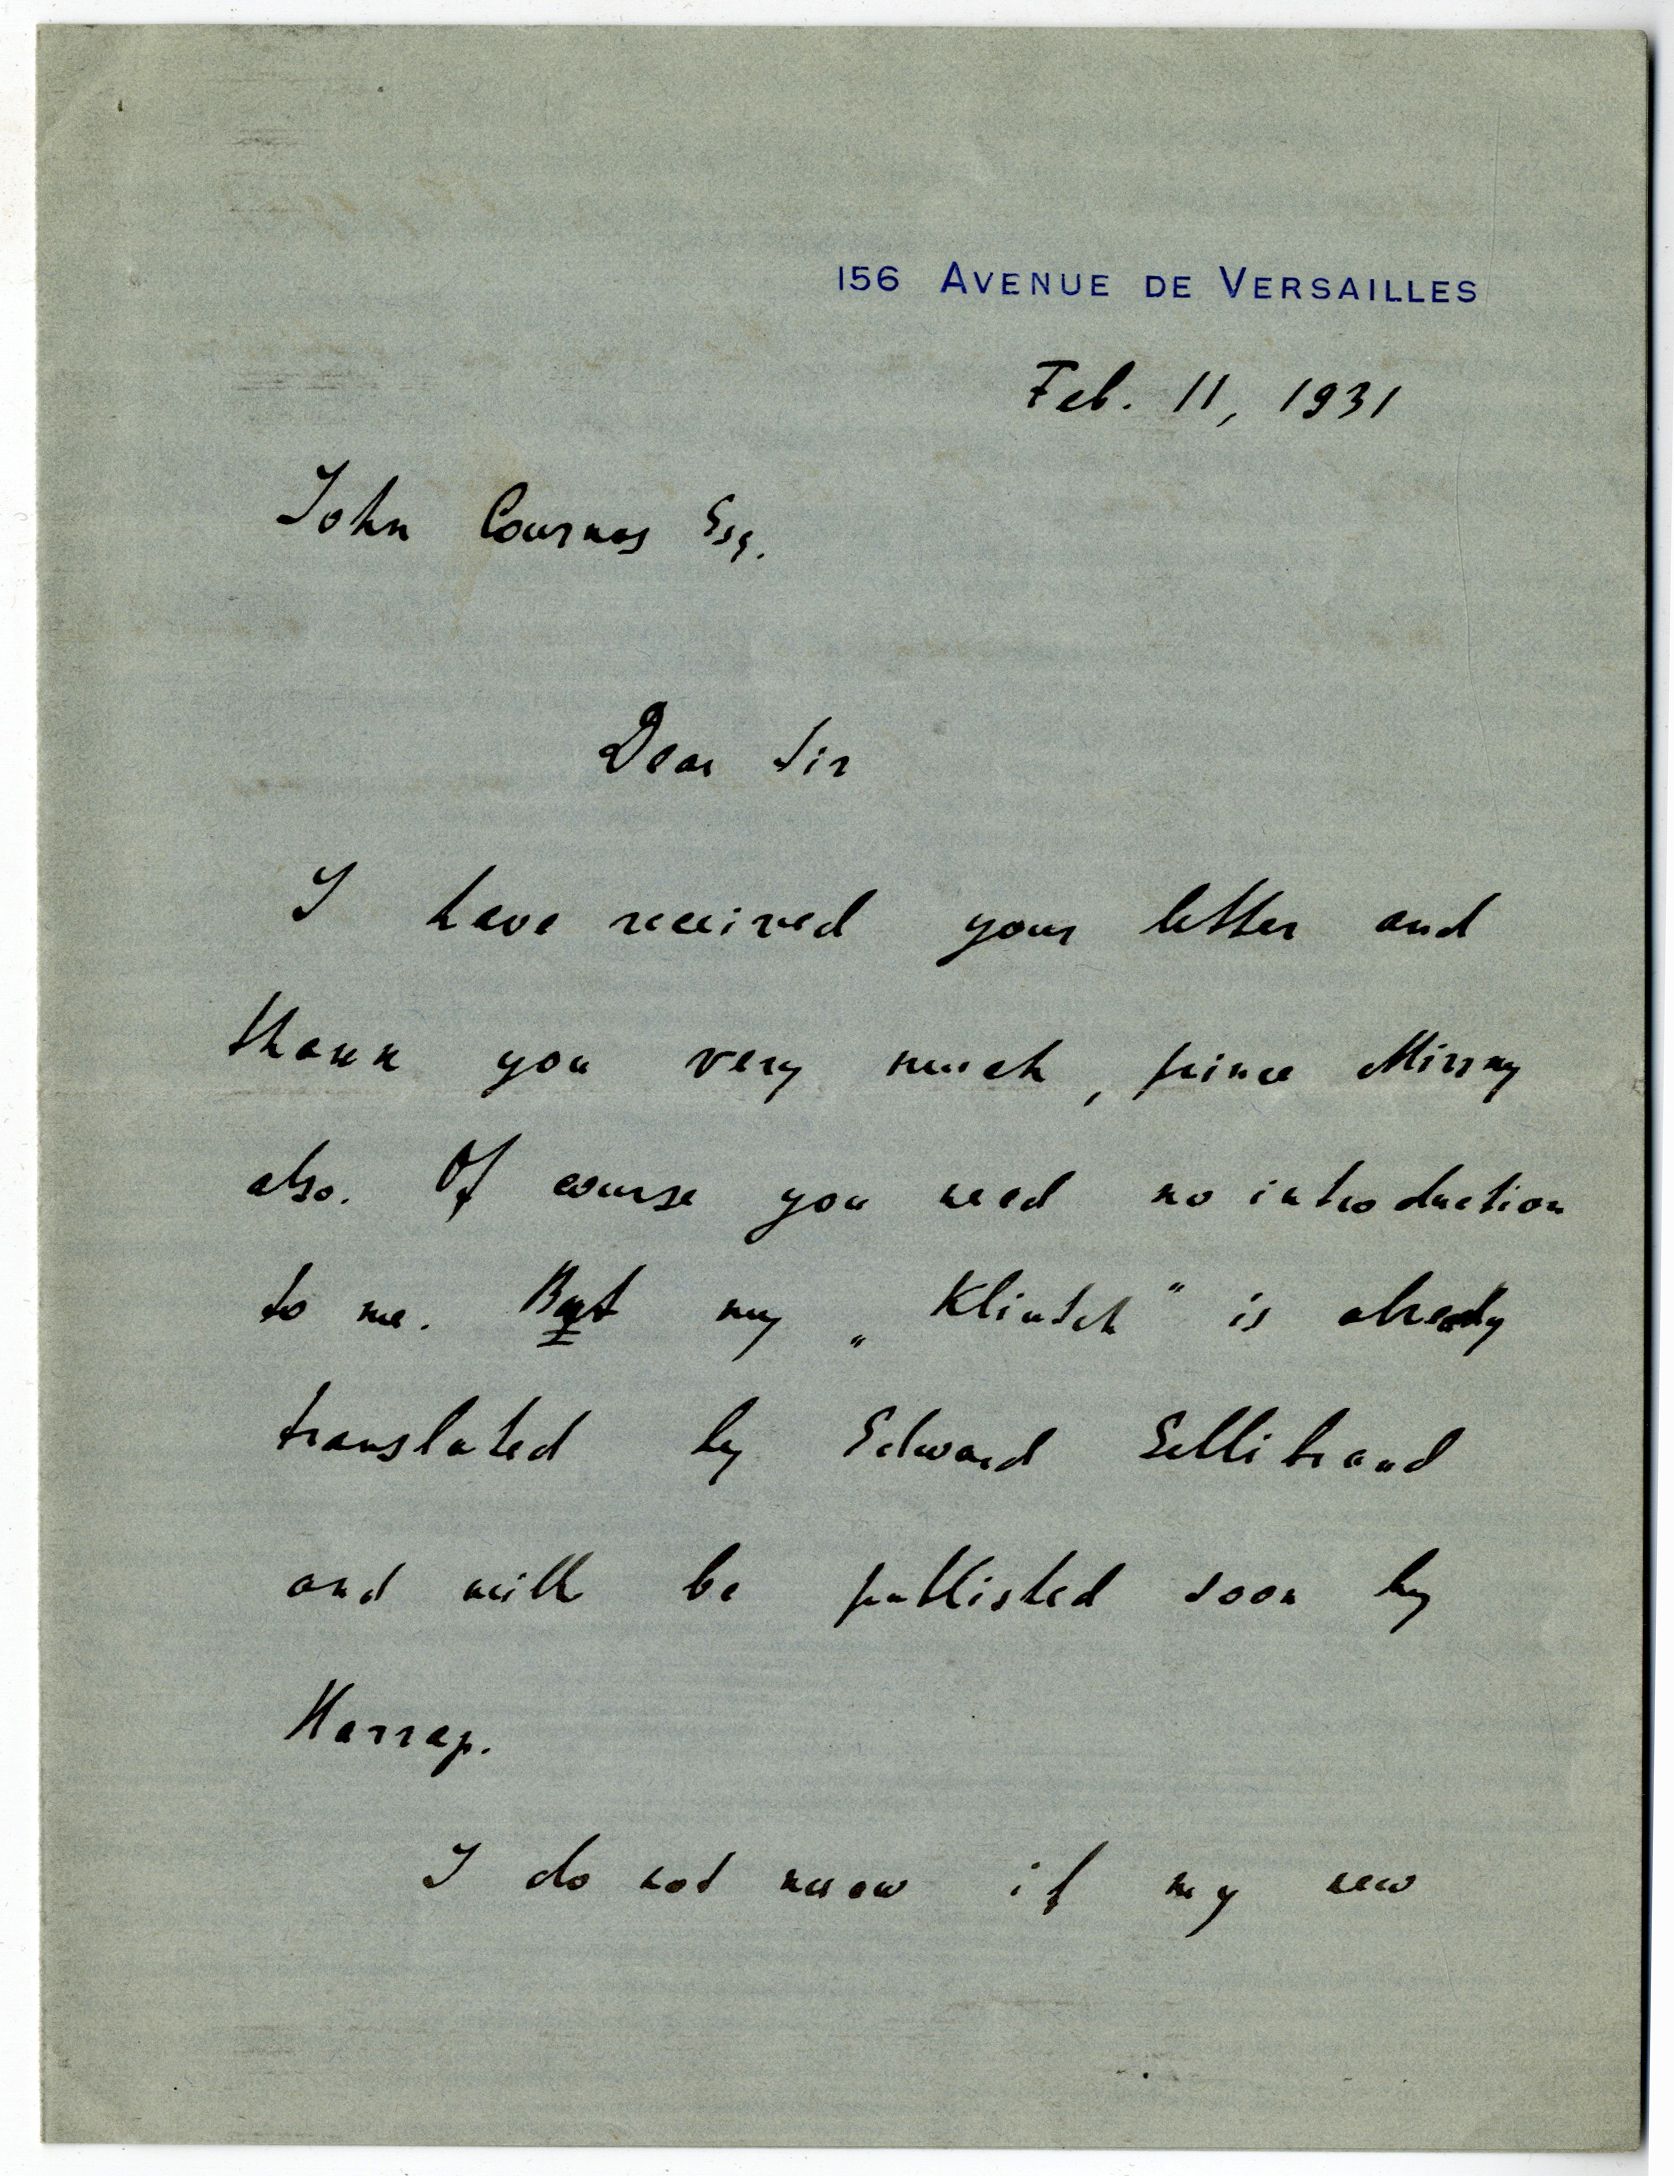 156 AVENUE DE VERSAILLES
Feb. 11, 1931
John Cournos Esq.
Dear Sir
I have received your letter and
thank you very much, prince Mirsky
also. Of course you need no introduction
to me. But my „Kliutch" is already
translated by Edward Sellibrand
and will be published soon by
Harrap.
I do not know if my new